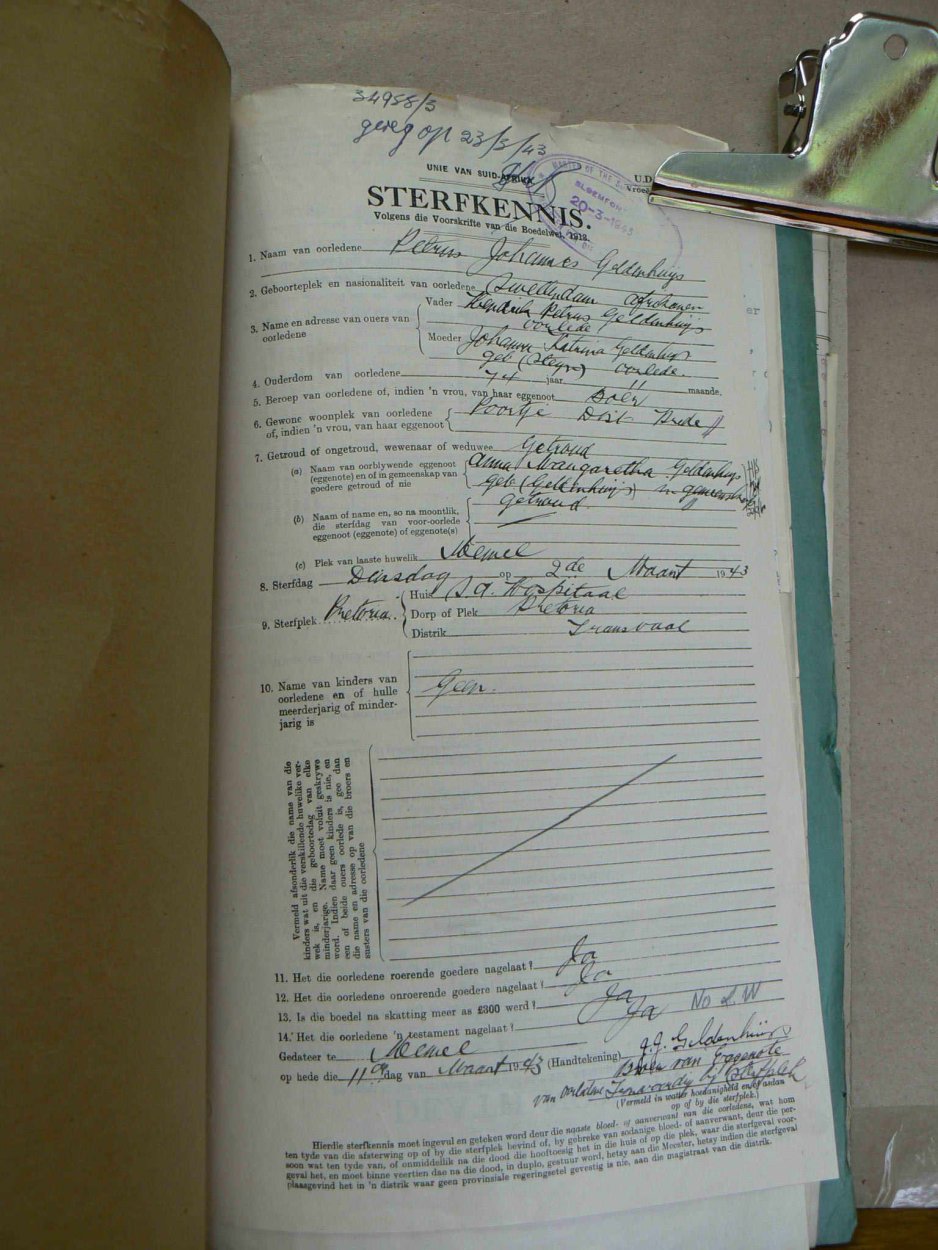 34958/3
gereg op 23/3/43
UNIE VAN SUID-AFRIKA
U.D.
STERFKENNIS.
Volgens die Voorskrifte van die Boedelwet, 1913.
MASTER OF THE
BLOEMFON
20-3-1943
1. Naam van oorledene Petrus Johannes Geldenhuys
2. Geboorteplek en nasionaliteit van oorledene Swellendam afrikaner
3. Name en adresse van ouers van oorledene
Vader Hendrik Petrus Geldenhuys
oorlede
Moeder Johanna Katrina Geldenhuys
geb (Steyn) oorlede.
4. Ouderdom van oorledene 74 jaar 11 maande.
5. Beroep van oorledene of, indien 'n vrou, van haar eggenoot Boer
6. Gewone woonplek van oorledene of, indien 'n vrou, van haar eggenoot Poortje Dist Vrede
7. Getroud of ongetroud, wewenaar of weduwee Getroud
(a) Naam van oorblywende eggenoot (eggenote) en of in gemeenskap van goedere getroud of nie
Anna Margaretha Geldenhuys
geb (Geldenhuys) in gemeenskap
getroud.
(b) Naam of name en, so na moontlik, die sterfdag van voor-oorlede eggenoot (eggenote) of eggenote(s)
(c) Plek van laaste huwelik Memel
8. Sterfdag Dinsdag op 2de Maart 1943
9. Sterfplek Pretoria.
Huis Hospitaal
Dorp of Plek Pretoria
Distrik Transvaal
10. Name van kinders van oorledene en of hulle meerderjarig of minderjarig is
Geen.
Vermeld afsonderlik die name van die
kinders wat uit die verskillende huwelike ver-
wek is, en die geboortedag van elke
minderjarige. Name moet voluit geskrywe
word. Indien daar geen kinders is nie, en
een of beide ouers oorlede is, gee dan
die name en adresse op van die broers en
susters van die oorledene
11. Het die oorledene roerende goedere nagelaat? Ja
12. Het die oorledene onroerende goedere nagelaat? Ja
13. Is die boedel na skatting meer as £300 werd? Ja
14. Het die oorledene 'n testament nagelaat? Ja No L W
Gedateer te Memel
op hede die 11de dag van Maart 1943 (Handtekening) Geldenhuys
Broer van Eggenote
van oorledene
(Vermeld in watter hoedanigheid en of aanwesig op of by die sterfplek.)
Hierdie sterfkennis moet ingevul en geteken word deur die naaste bloed- of aanverwant van die oorledene, wat hom
ten tyde van die afsterwing op of by die sterfplek bevind of, by gebreke van sodanige bloed- of aanverwant, deur die per-
soon wat ten tyde van, of onmiddellik na die dood die hooftoesig het in die huis of op die plek, waar die sterfgeval voor-
geval het, en moet binne veertien dae na die dood, in duplo, gestuur word, hetsy aan die Meester, hetsy indien die sterfgeval
plaasgevind het in 'n distrik waar geen provinsiale regeringsetel gevestig is nie, aan die magistraat van die distrik.